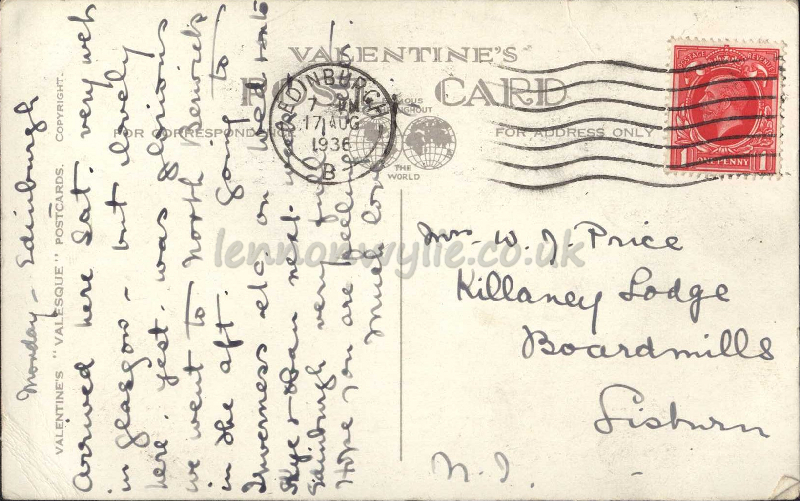 VALENTINE'S
POST CARD
FOR CORRESPONDENCE
FOR ADDRESS ONLY
FAMOUS THROUGHOUT
THE WORLD
VALENTINE'S "VALESQUE" POSTCARDS. COPYRIGHT.
EDINBURGH
7 PM
17 AUG
1936
B
POSTAGE REVENUE
1 ONE PENNY 1
Monday - Edinburgh
Arrived here Sat. very wet
in Glasgow - but lovely
here. Yest. was glorious
we went to North Berwick
in the aft. Going to
Inverness etc on Wed. &
Skye & Oban next week.
Edinburgh very full.
Hope you are feeling
Much love
Mrs. W. J. Price
Killaney Lodge
Boardmills
Lisburn
N.I.
lennonwylie.co.uk